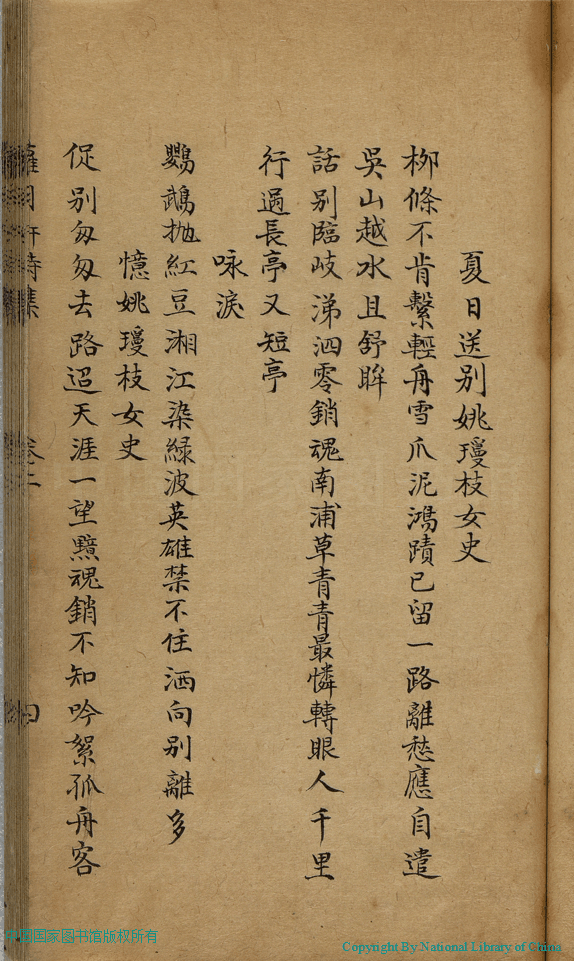 夏日送别姚瓊枝女史
柳條不肯繫輕舟雪爪泥鴻蹟已留一路離愁應自遣
吳山越水且舒眸
話别臨岐涕泗零銷魂南浦草青青最憐轉眼人千里
行過長亭又短亭
咏淚
鸚鵡抛紅豆湘江染綠波英雄禁不住洒向别離多
憶姚瓊枝女史
促别匆匆去路迢天涯一望黯魂銷不知吟絮孤舟客
詩集 卷二 四
中国国家图书馆版权所有
Copyright By National Library of China